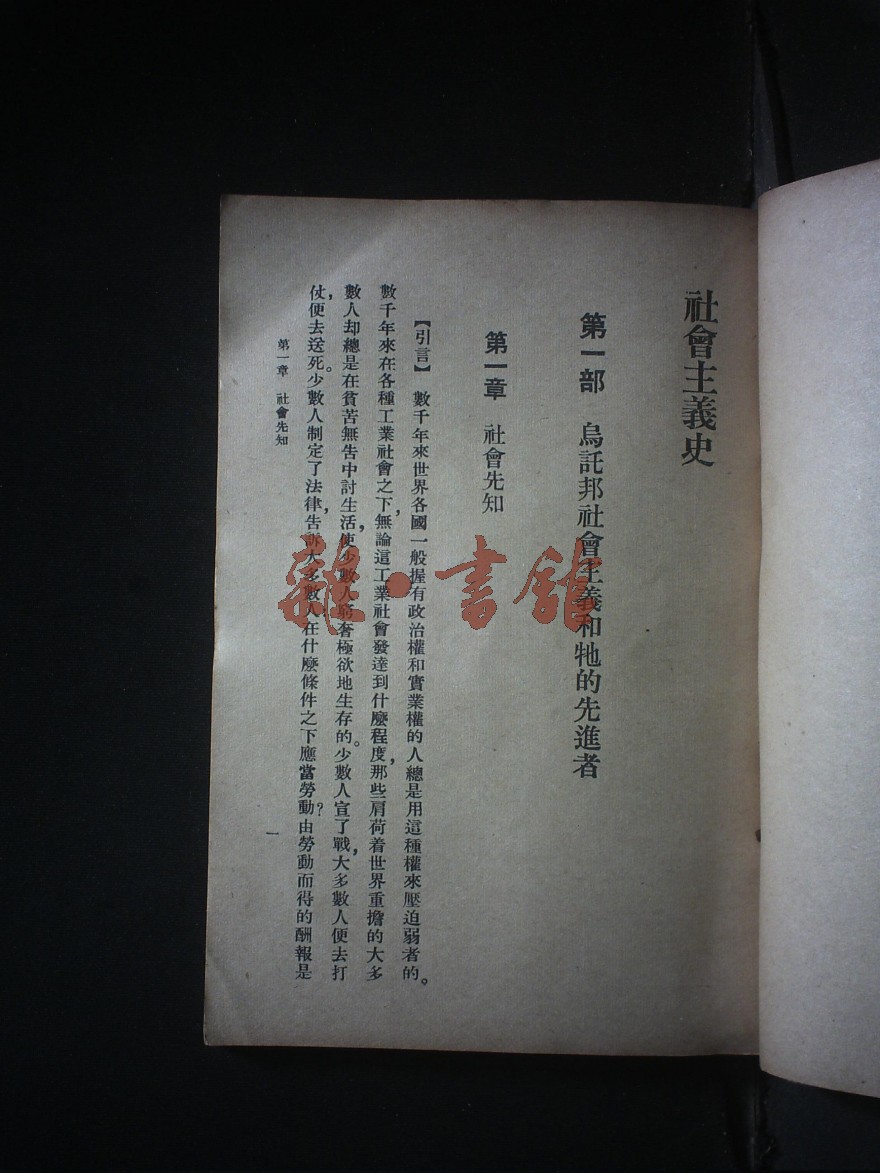 社會主義史
第一部　烏託邦社會主義和牠的先進者
第一章　社會先知
【引言】　數千年來世界各國一般握有政治權和實業權的人總是用這種權來壓迫弱者的。
數千年來在各種工業社會之下，無論這工業社會發達到什麼程度，那些肩荷着世界重擔的大多
數人却總是在貧苦無告中討生活，使少數人窮奢極欲地生存的。少數人宣了戰，大多數人便去打
仗，便去送死。少數人制定了法律，告訴大多數人在什麼條件之下應當勞動？由勞動而得的酬報是
第一章　社會先知
一
雜·書舘